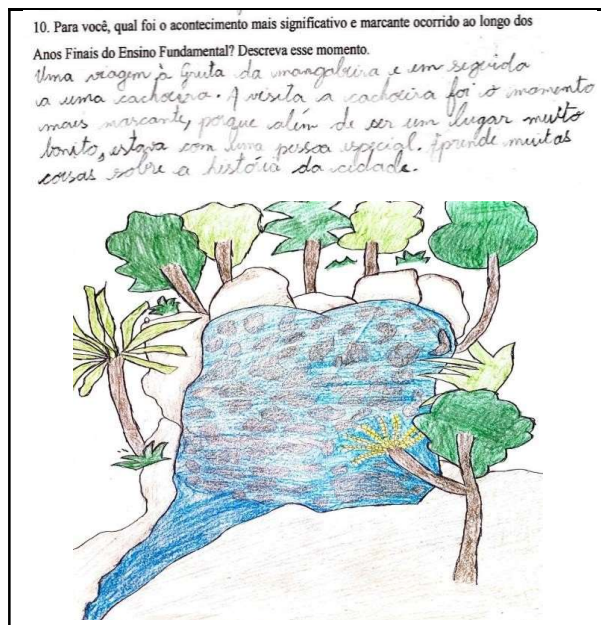 10. Para você, qual foi o acontecimento mais significativo e marcante ocorrido ao longo dos
Anos Finais do Ensino Fundamental? Descreva esse momento.
Uma viagem à Gruta da mangabeira e em seguida
a uma cachoeira. A visita a cachoeira foi o momento
mais marcante, porque além de ser um lugar muito
bonito, estava com uma pessoa especial. Aprende muitas
coisas sobre a história da cidade.